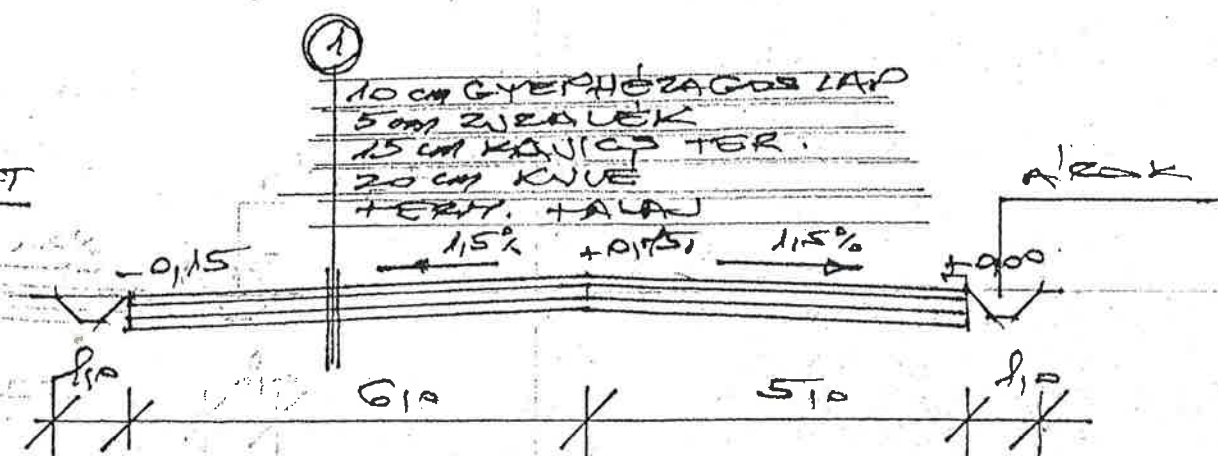 1
10 cm GYEPHÉZAGOS LAP
5 cm ZUZALÉK
15 cm KAVICS TER.
20 cm
TERM. TALAJ
ÁROK
1,5%
1,5%
-0,15
±0,00
1,0
6,0
5,0
1,0